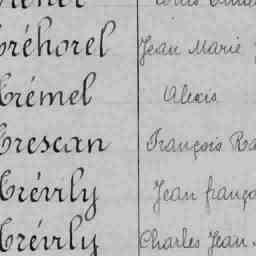 Tréhorel Jean Marie
Trémel Alexis
Trescan François
Trévily Jean
Trévily Charles Jean